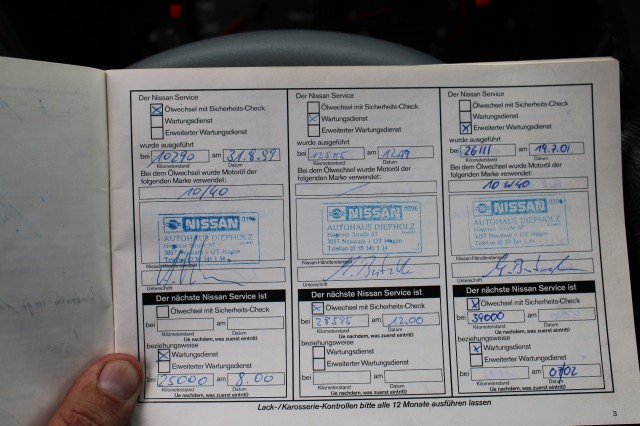 Der Nissan Service
Ölwechsel mit Sicherheits-Check
Wartungsdienst
Erweiterter Wartungsdienst
wurde ausgeführt
bei 10290 am 31.8.99
Kilometerstand Datum
Bei dem Ölwechsel wurde Motoröl der
folgenden Marke verwendet:
10/40
NISSAN 0296
AUTOHAUS DIEPHOLZ
Hagener Straße 67
3057 Neustadt 1 OT Hagen
Unterschrift
Der nächste Nissan Service ist
Ölwechsel mit Sicherheits-Check
bei am
Kilometerstand Datum
(Je nachdem, was zuerst eintritt)
beziehungsweise
Wartungsdienst
Erweiterter Wartungsdienst
bei 25000 am 8.00
Kilometerstand Datum
(Je nachdem, was zuerst eintritt)
Der Nissan Service
Ölwechsel mit Sicherheits-Check
Wartungsdienst
Erweiterter Wartungsdienst
wurde ausgeführt
bei am
Kilometerstand Datum
Bei dem Ölwechsel wurde Motoröl der
folgenden Marke verwendet:
NISSAN 0296
AUTOHAUS DIEPHOLZ
Hagener Straße 67
3057 Neustadt 1 OT Hagen
Nissan-Händlerstempel
Unterschrift
Der nächste Nissan Service ist
Ölwechsel mit Sicherheits-Check
bei 28585 am 12.00
Kilometerstand Datum
(Je nachdem, was zuerst eintritt)
beziehungsweise
Wartungsdienst
Erweiterter Wartungsdienst
bei am
Kilometerstand Datum
(Je nachdem, was zuerst eintritt)
Der Nissan Service
Ölwechsel mit Sicherheits-Check
Wartungsdienst
Erweiterter Wartungsdienst
wurde ausgeführt
bei 26111 am 19.7.01
Kilometerstand Datum
Bei dem Ölwechsel wurde Motoröl der
folgenden Marke verwendet:
10W40
NISSAN 0296
AUTOHAUS DIEPHOLZ
Hagener Straße 67
3057 Neustadt 1 OT Hagen
Nissan-Händlerstempel
Unterschrift
Der nächste Nissan Service ist
Ölwechsel mit Sicherheits-Check
bei 39000 am
Kilometerstand Datum
(Je nachdem, was zuerst eintritt)
beziehungsweise
Wartungsdienst
Erweiterter Wartungsdienst
bei am 07/02
Kilometerstand Datum
(Je nachdem, was zuerst eintritt)
Lack-/Karosserie-Kontrollen bitte alle 12 Monate ausführen lassen
3